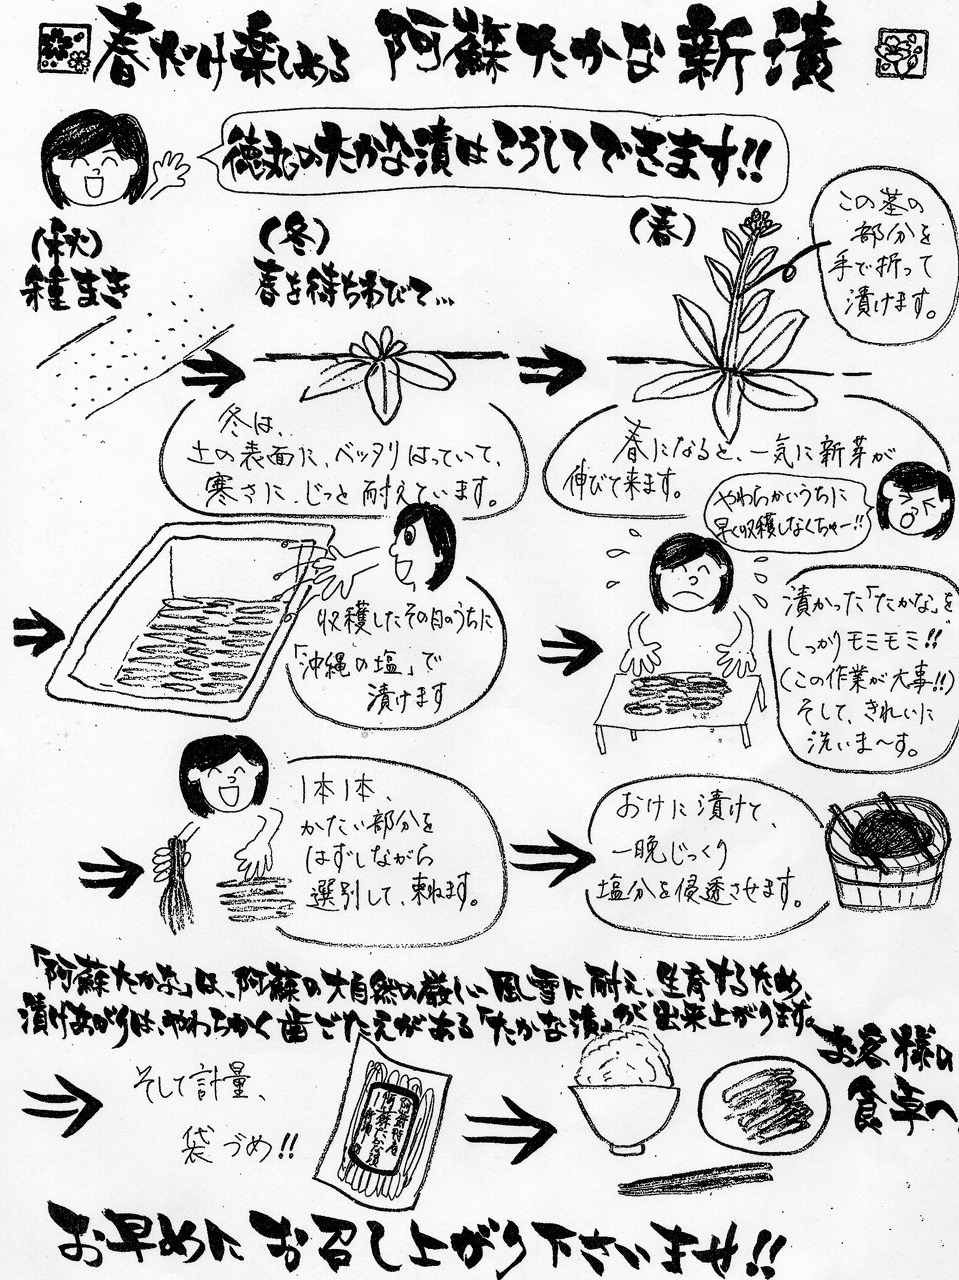 春だけ楽しめる 阿蘇たかな新漬
徳丸のたかな漬はこうしてできます!!
(秋)
種まき
(冬)
春を待ちわびて…
(春)
この茎の
部分を
手で折って
漬けます。
冬は、
土の表面に、ベッタリはっていて、
寒さに、じっと耐えています。
春になると、一気に新芽が
伸びて来ます。
やわらかいうちに
早く収穫しなくちゃー!!
収穫したその日のうちに
「沖縄の塩」で
漬けます
漬かった「たかな」を
しっかりモミモミ!!
(この作業が大事!!)
そして、きれいに
洗いま〜す。
1本1本、
かたい部分を
はずしながら
選別して、束ねます。
おけに漬けて、
一晩じっくり
塩分を浸透させます。
「阿蘇たかな」は、阿蘇の大自然の厳しい風雪に耐え、生育するため、
漬けあがりは、やわらかく歯ごたえがある「たかな漬」が出来上がります。
そして計量、
袋づめ!!
お客様の
食卓へ
お早めにお召し上がり下さいませ!!